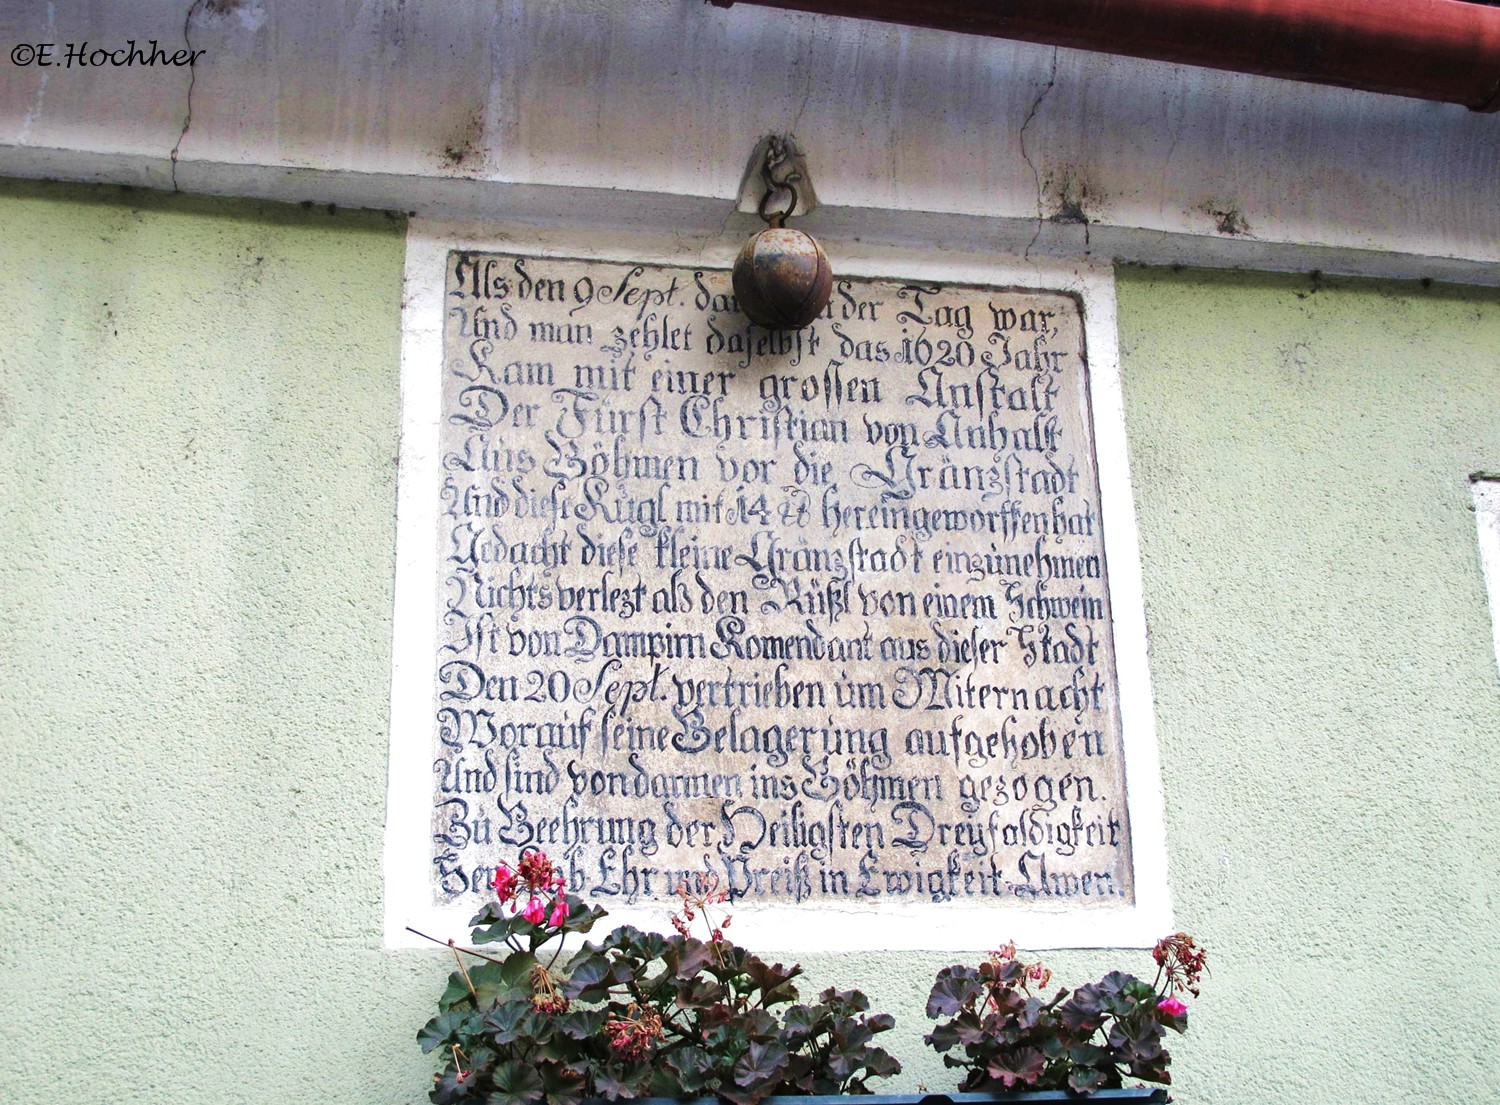 ©E.Hochher
Als den 9 Sept. der Tag war,
Und man zehlet daselbst das 1620 Jahr
Kam mit einer grossen Anstalt
Der Fürst Christian von Anhalt
Aus Böhmen vor die Gränzstadt
Und diese Kugl mit 14 ℔ hereingeworffen hat
Gedacht diese kleine Gränzstadt einzunehmen
Nichts verlezt alß den Rüßl von einem Schwein
Ist von Dampirn Komendant aus dieser Stadt
Den 20 Sept. vertrieben um Miternacht
Worauf seine Belagerung aufgehoben
Und sind von darmen ins Böhmen gezogen.
Zu Beehrung der Heiligsten Dreyfaldigkeit
Ehr und Preiß in Ewigkeit. Amen.